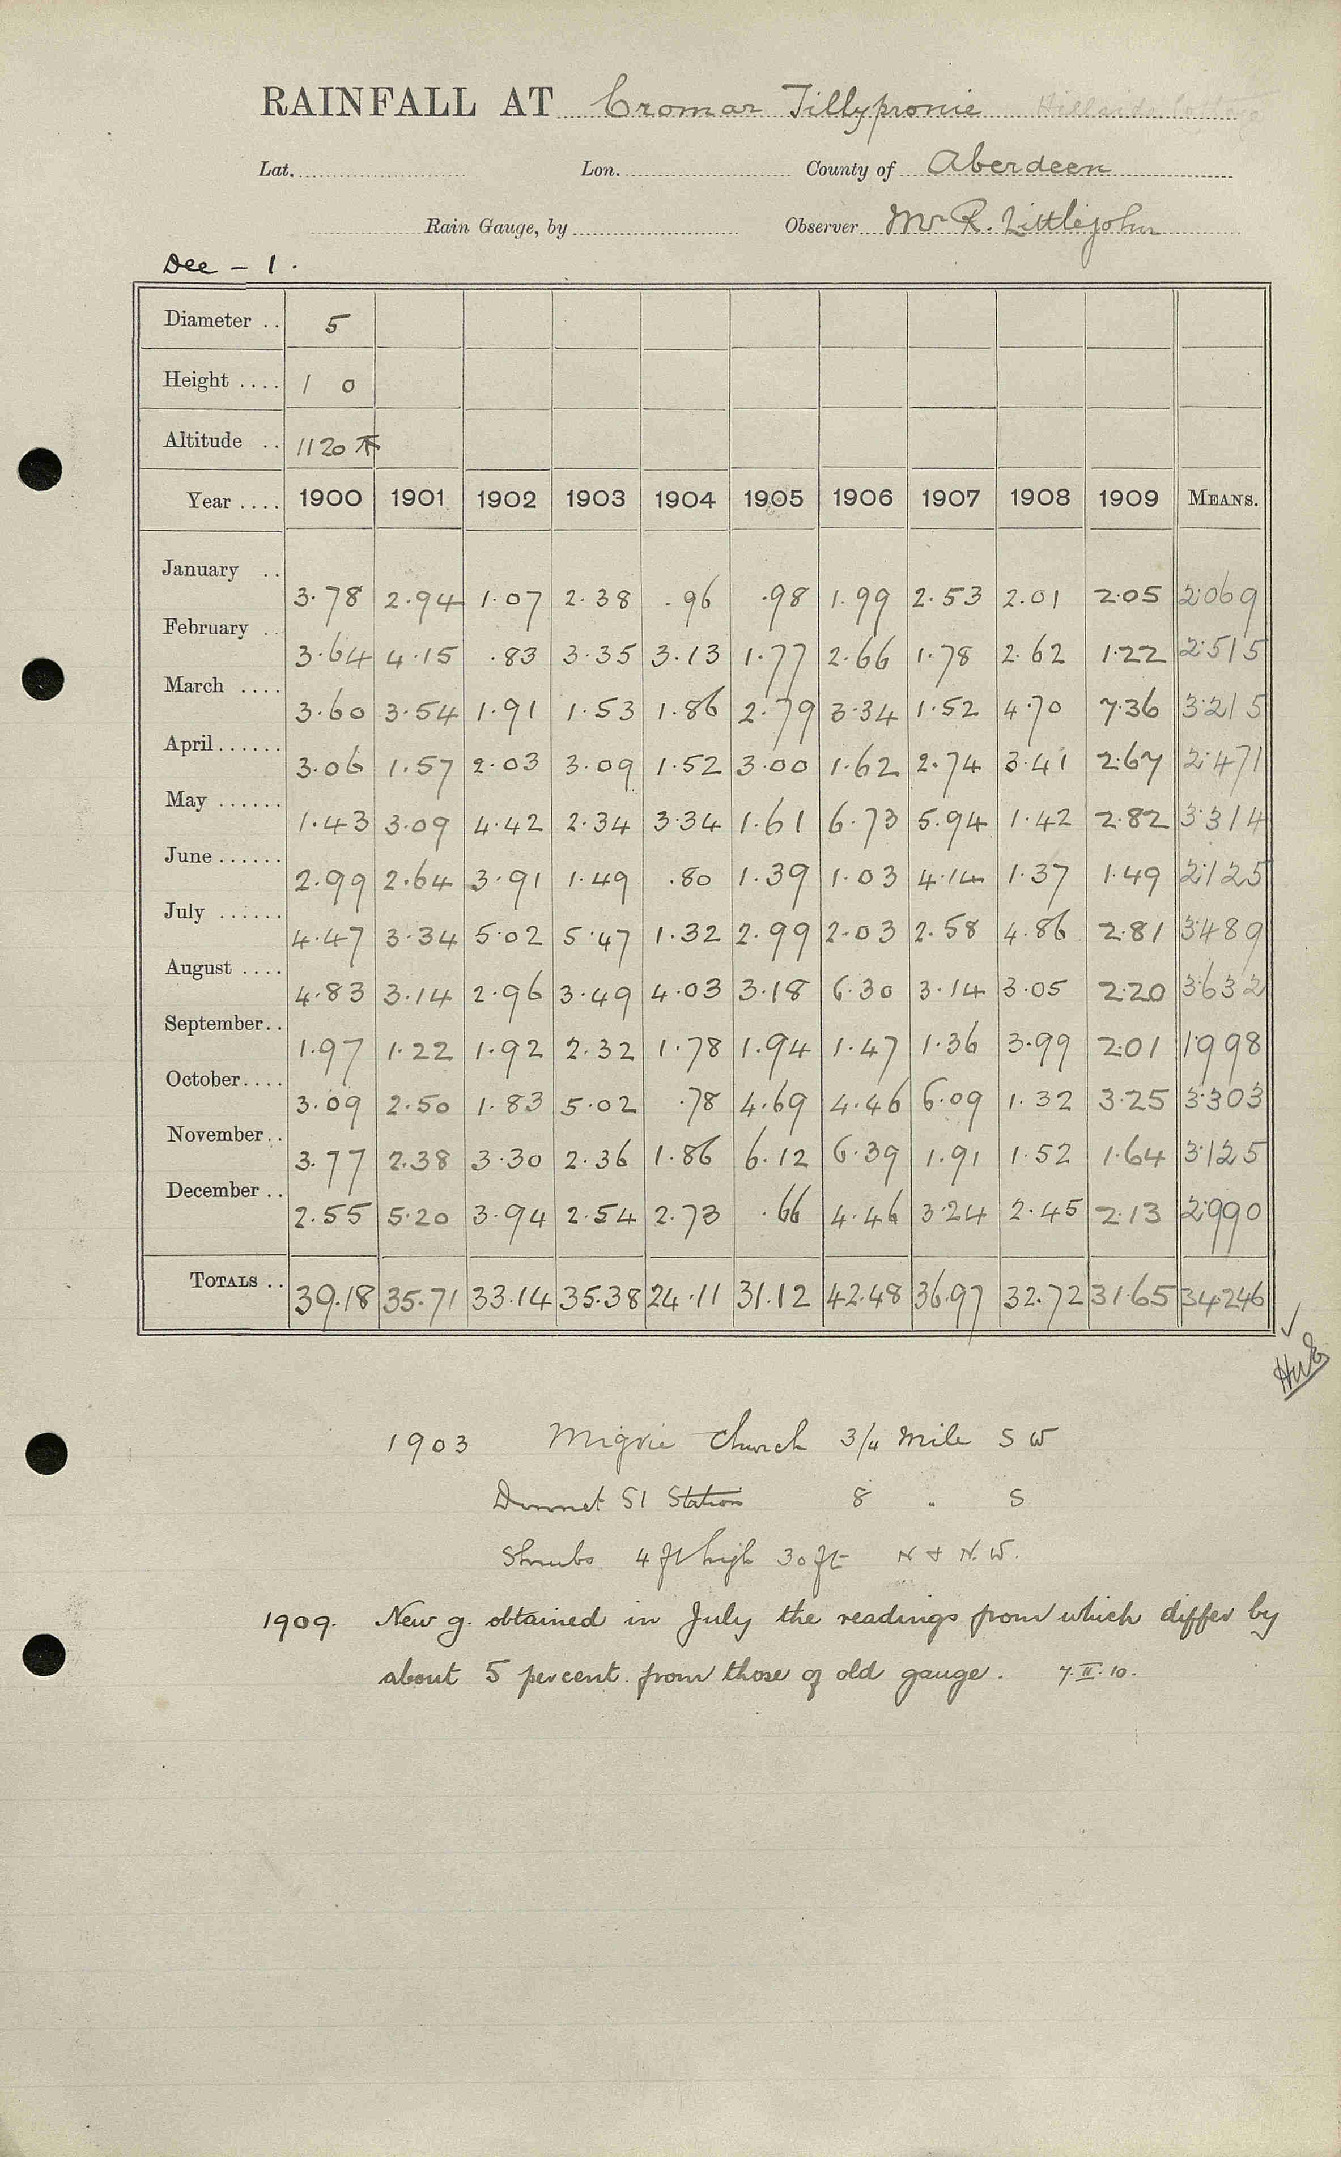 RAINFALL AT Cromar Tillypronie Hillside Cottage
Lat. Lon. County of Aberdeen
Rain Gauge, by Observer Mr R. Littlejohn
Dee - 1.
Diameter .. 5
Height .... 1 0
Altitude .. 1120
Year .... 1900 1901 1902 1903 1904 1905 1906 1907 1908 1909 MEANS.
January .. 3.78 2.94 1.07 2.38 .96 .98 1.99 2.53 2.01 2.05 2.069
February .. 3.64 4.15 .83 3.35 3.13 1.77 2.66 1.78 2.62 1.22 2.515
March .... 3.60 3.54 1.91 1.53 1.86 2.79 3.34 1.52 4.70 7.36 3.215
April...... 3.06 1.57 2.03 3.09 1.52 3.00 1.62 2.74 3.41 2.67 2.471
May ...... 1.43 3.09 4.42 2.34 3.34 1.61 6.73 5.94 1.42 2.82 3.314
June ...... 2.99 2.64 3.91 1.49 .80 1.39 1.03 4.14 1.37 1.49 2.125
July ...... 4.47 3.34 5.02 5.47 1.32 2.99 2.03 2.58 4.86 2.81 3.489
August .... 4.83 3.14 2.96 3.49 4.03 3.18 6.30 3.14 3.05 2.20 3.632
September.. 1.97 1.22 1.92 2.32 1.78 1.94 1.47 1.36 3.99 2.01 1.998
October.... 3.09 2.50 1.83 5.02 .78 4.69 4.46 6.09 1.32 3.25 3.303
November.. 3.77 2.38 3.30 2.36 1.86 6.12 6.39 1.91 1.52 1.64 3.125
December .. 2.55 5.20 3.94 2.54 2.73 .66 4.46 3.24 2.45 2.13 2.990
TOTALS .. 39.18 35.71 33.14 35.38 24.11 31.12 42.48 36.97 32.72 31.65 34.246
1903 Migvie Church 3/4 Mile S W
Dinnet St Station 8 " S
Shrubs 4 ft high 30 ft N & N.W.
1909. New g. obtained in July the readings from which differ by
about 5 percent. from those of old gauge. 7.II.10.